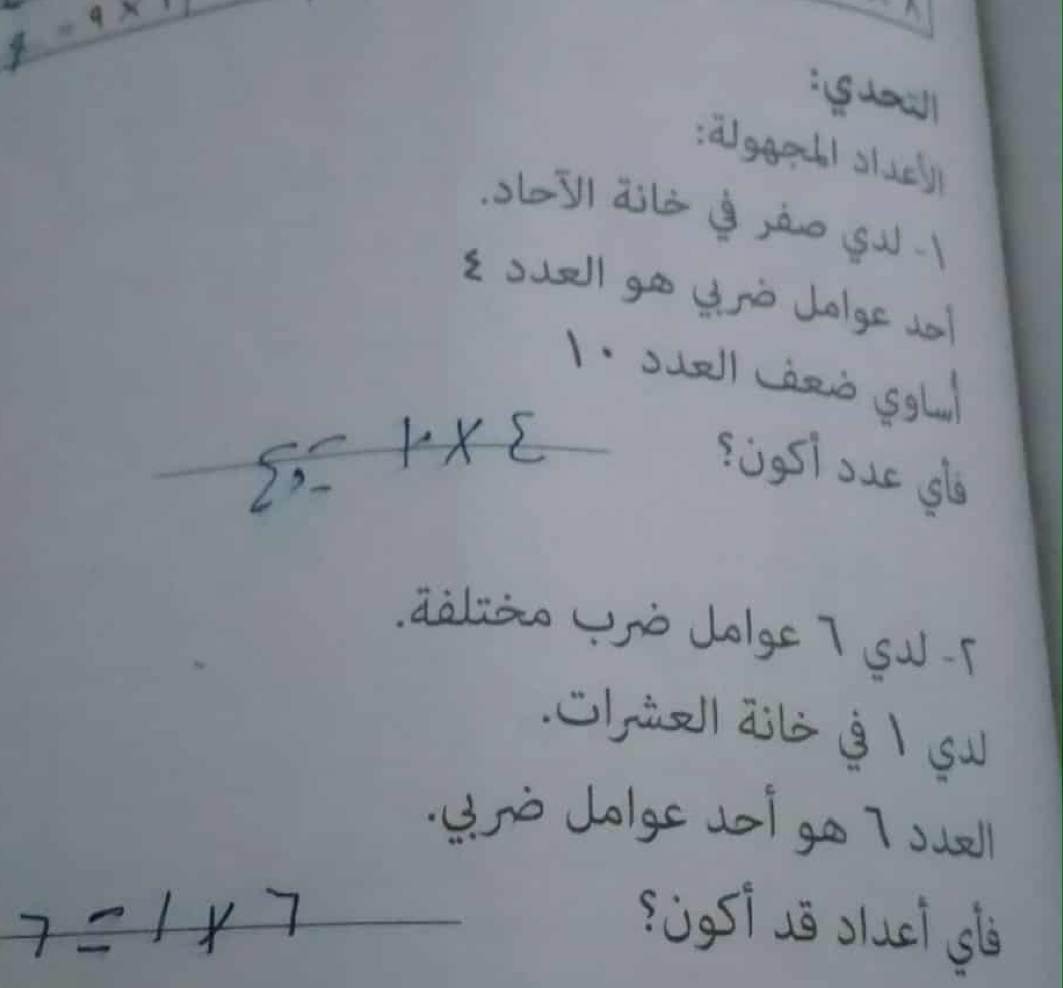 = ٩ ×
التحدي:
الأعداد المجهولة:
١- لدي صفر في خانة الآحاد.
أحد عوامل ضربي هو العدد ٤
أساوي ضعف العدد ١٠
فأي عدد أكون؟ ٤ × ١٠ = ٤٠
٢- لدي ٦ عوامل ضرب مختلفة.
لدي ١ في خانة العشرات.
العدد ٦ هو أحد عوامل ضربي.
فأي أعداد قد أكون؟ ٦ × ١ = ٦